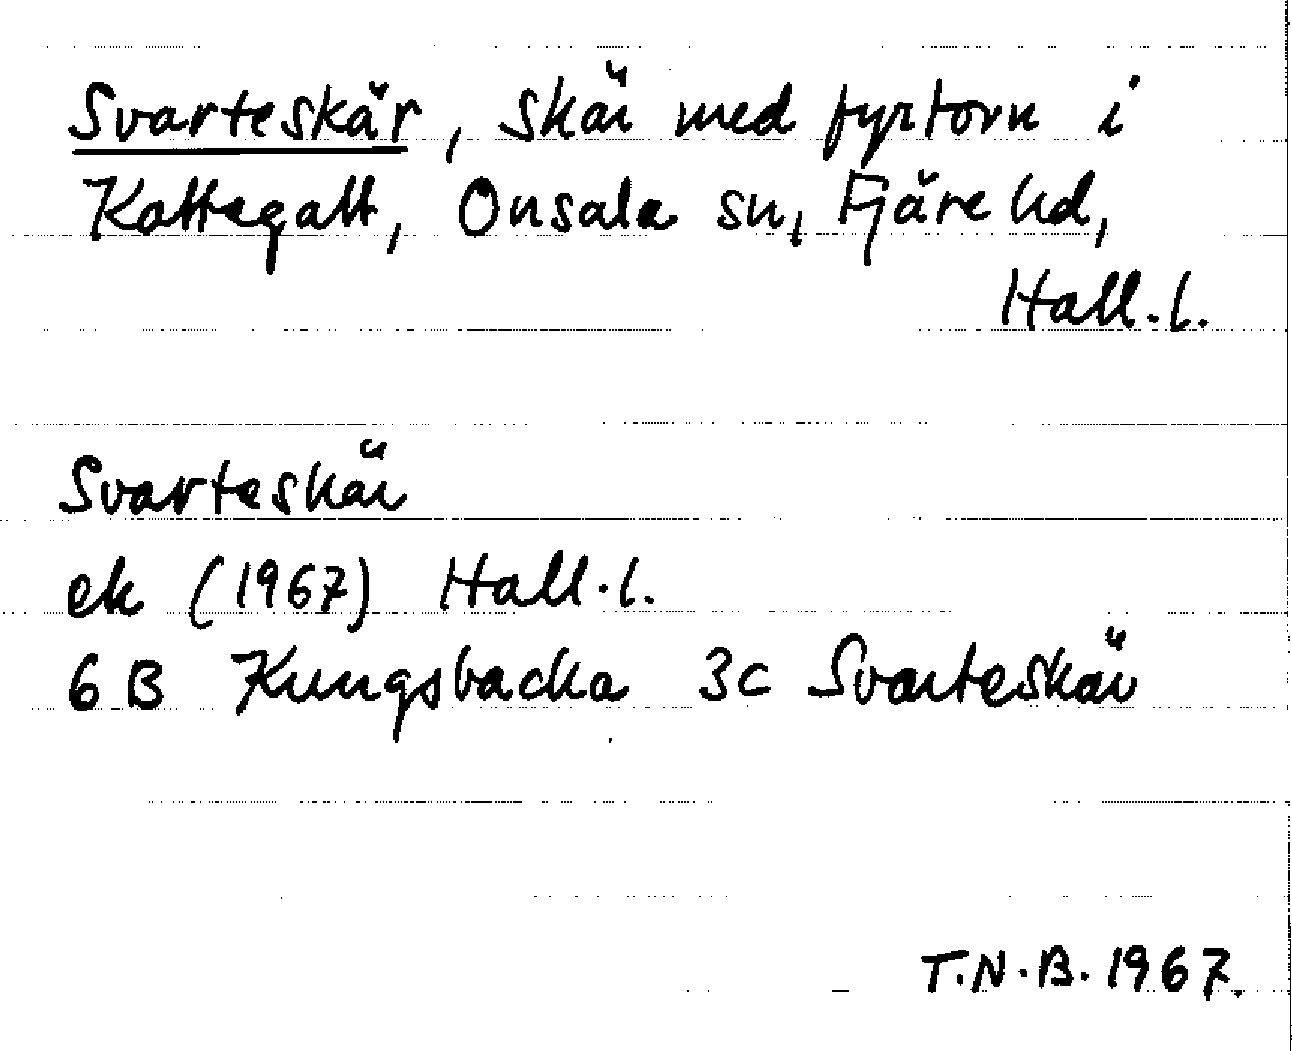 Svarteskär, skär med fyrtorn i
Kattegatt, Onsala sn, Fjäre hd,
Hall.l.
Svarteskär
ek (1967) Hall.l.
6 B Kungsbacka 3c Svarteskär
T.N.B. 1967.